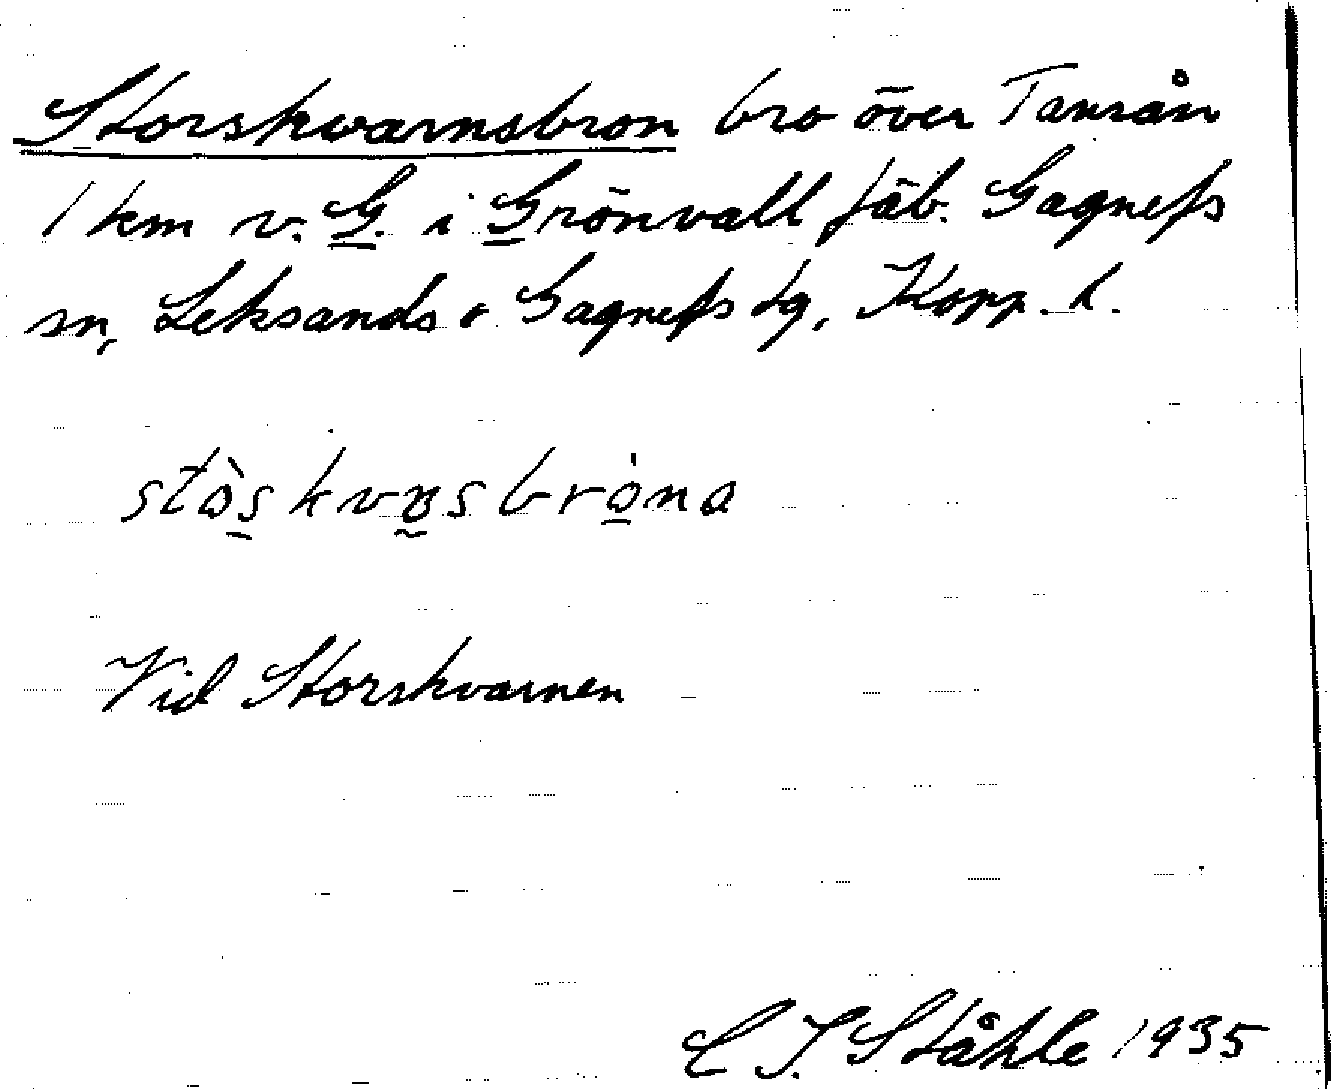 Storskvarnsbron bro över Tansån
1 km v. G. i Grönvall fäb. Gagnefs
sn, Leksands o Gagnefs tg, Kopp. l.
Vid Storskvarnen
C I Ståhle 1935